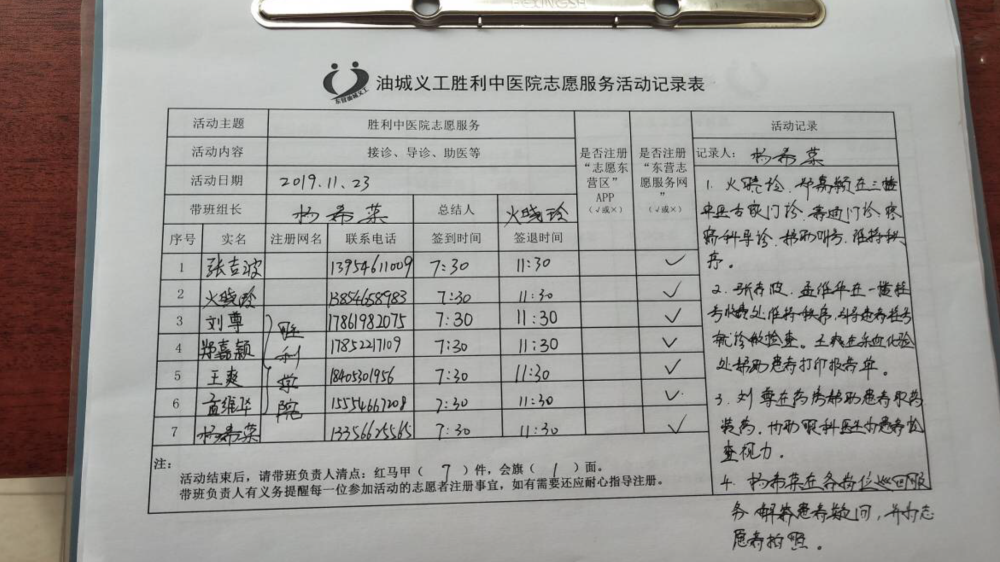 东营油城义工
油城义工胜利中医院志愿服务活动记录表
活动主题 胜利中医院志愿服务
活动内容 接诊、导诊、助医等
活动日期 2019.11.23
带班组长 杨希菜 总结人 火晓玲
是否注册
“志愿东
营区”
APP
（√或×）
是否注册
“东营志
愿服务网
”
（√或×）
序号 实名 注册网名 联系电话 签到时间 签退时间
1 张吉波 13954611009 7:30 11:30 ✓
2 火晓玲 13854658983 7:30 11:30 ✓
3 刘尊 17861982075 7:30 11:30 ✓
4 郑嘉颖 17852217109 7:30 11:30 ✓
5 王爽 18405301956 7:30 11:30 ✓
6 孟维华 15554667208 7:30 11:30 ✓
7 杨希菜 13356625565 7:30 11:30 ✓
胜利学院
注：
活动结束后，请带班负责人清点：红马甲（ 7 ）件，会旗（ 1 ）面。
带班负责人有义务提醒每一位参加活动的志愿者注册事宜，如有需要还应耐心指导注册。
活动记录
记录人：杨希菜
1. 火晓玲、郑嘉颖在三楼
门诊 普通门诊
科导诊、帮助叫号、维持秩
序。
2. 张吉波、孟维华在一楼挂
号收费处维持秩序，引导患者挂号
就诊做检查。王爽在采血化验
处帮助患者打印报告单。
3. 刘尊在药房帮助患者取药
装药，协助眼科医生为患者检
查视力。
4. 杨希菜在各岗位巡回服
务 解答患者疑问，并为志
愿者拍照。